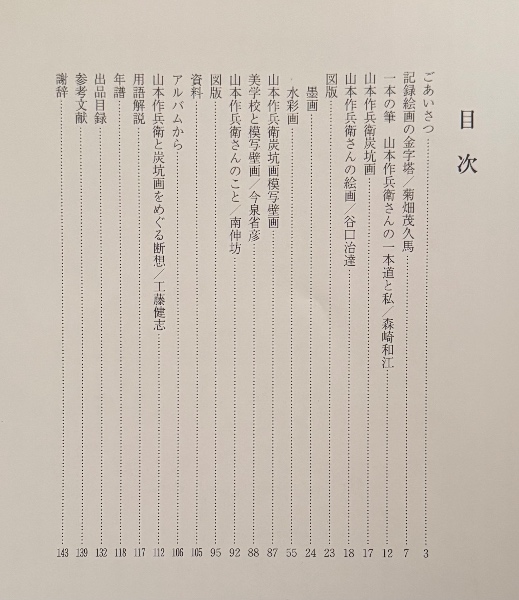 目次
ごあいさつ 3
記録絵画の金字塔／菊畑茂久馬 7
一本の筆 山本作兵衛さんの一本道と私／森崎和江 12
山本作兵衛炭坑画 17
山本作兵衛さんの絵画／谷口治達 18
図版 23
墨画 24
水彩画 55
山本作兵衛炭坑画模写壁画 87
美学校と模写壁画／今泉省彦 88
山本作兵衛さんのこと／南伸坊 92
図版 95
資料 105
アルバムから 106
山本作兵衛と炭坑画をめぐる断想／工藤健志 112
用語解説 117
年譜 118
出品目録 132
参考文献 139
謝辞 143